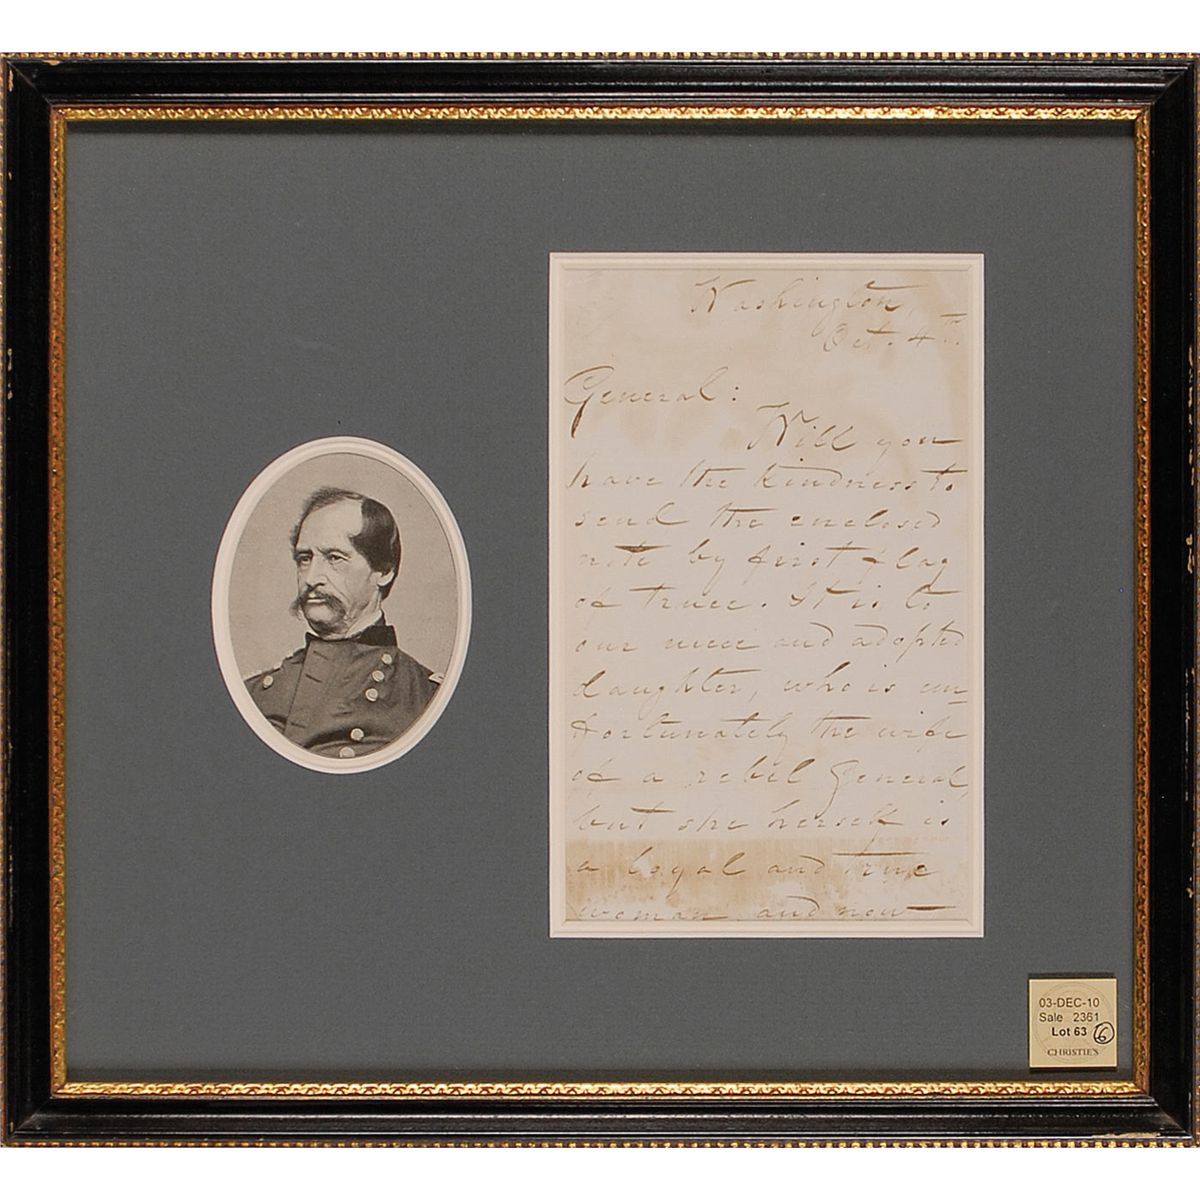 Washington,
Oct. 4th.
General:
Will you
have the kindness to
send the enclosed
note by first flag
of truce. It is to
our niece and adopted
daughter, who is un-
fortunately the wife
of a rebel General,
but she herself is
a loyal and true
woman, and now
03-DEC-10
Sale 2361
Lot 63 6
CHRISTIE'S